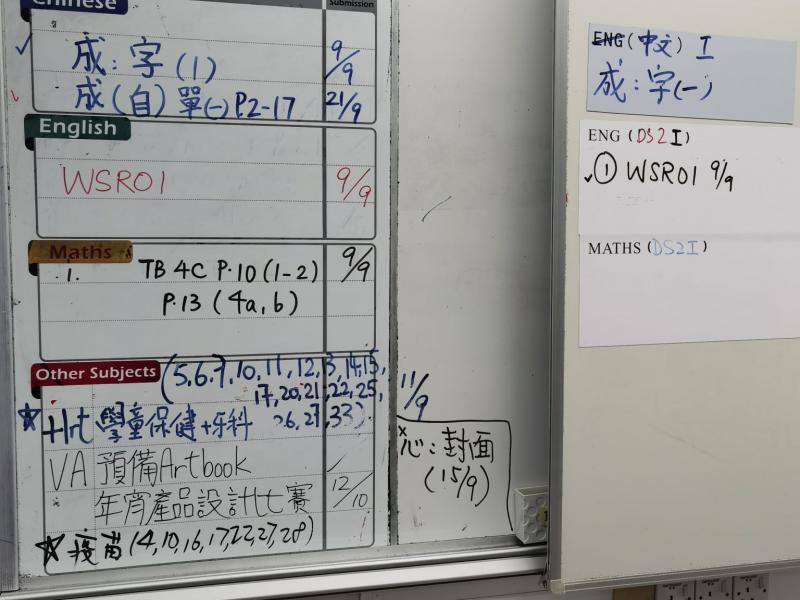 Chinese
Submission
成：字(1) 9/9
成(自)單(一)P.2-17 21/9
English
WSR01 9/9
Maths
1. TB 4C P.10 (1-2) 9/9
P.13 (4a, b)
Other Subjects
(5,6,7,10,11,12,13,14,15,
17,20,21,22,25,
26,27,33)
Hrt 學童保健+牙科 11/9
VA 預備Artbook
年宵產品設計比賽 12/10
疫苗(4,10,16,17,22,27,28)
心：封面
(15/9)
ENG (中文) I
成：字(一)
ENG (DS2I)
① WSR01 9/9
MATHS (DS2I)